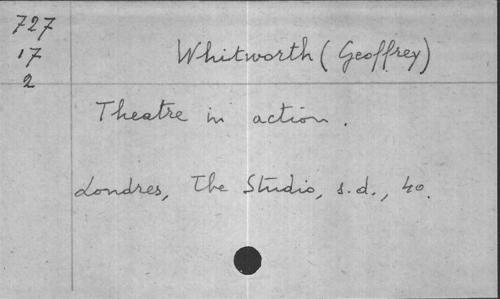 727
17
2
Whitworth (Geoffrey)
Theatre in action.
Londres, The Studio, s.d., 4o.